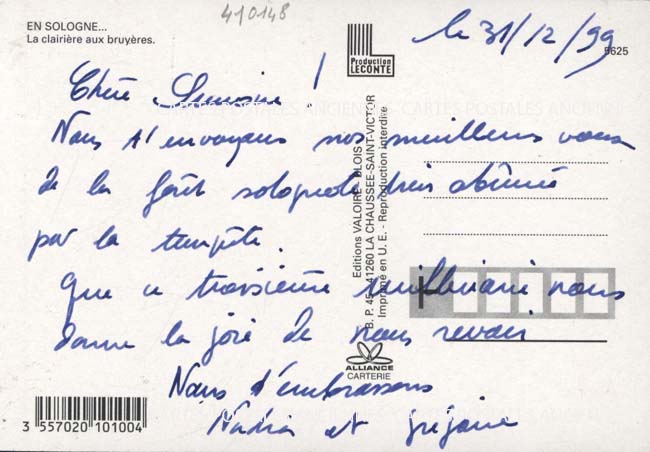 410148
EN SOLOGNE...
La clairière aux bruyères.
Production
LECONTE
le 31/12/99
5625
Chère !
Nous t'envoyons nos meilleurs voeux
de la forêt solognote très abîmée
par la tempête.
Que ce troisième millénaire nous
donne la joie de nous revoir
Nous t'embrassons
Nadia et Grégoire
Editions VALOIRE - BLOIS
B. P. 45 - 41260 LA CHAUSSEE-SAINT-VICTOR
Imprimé en U. E. - Reproduction interdite
ALLIANCE
CARTERIE
3 557020 101004
CARTES POSTALES ANCIENNES